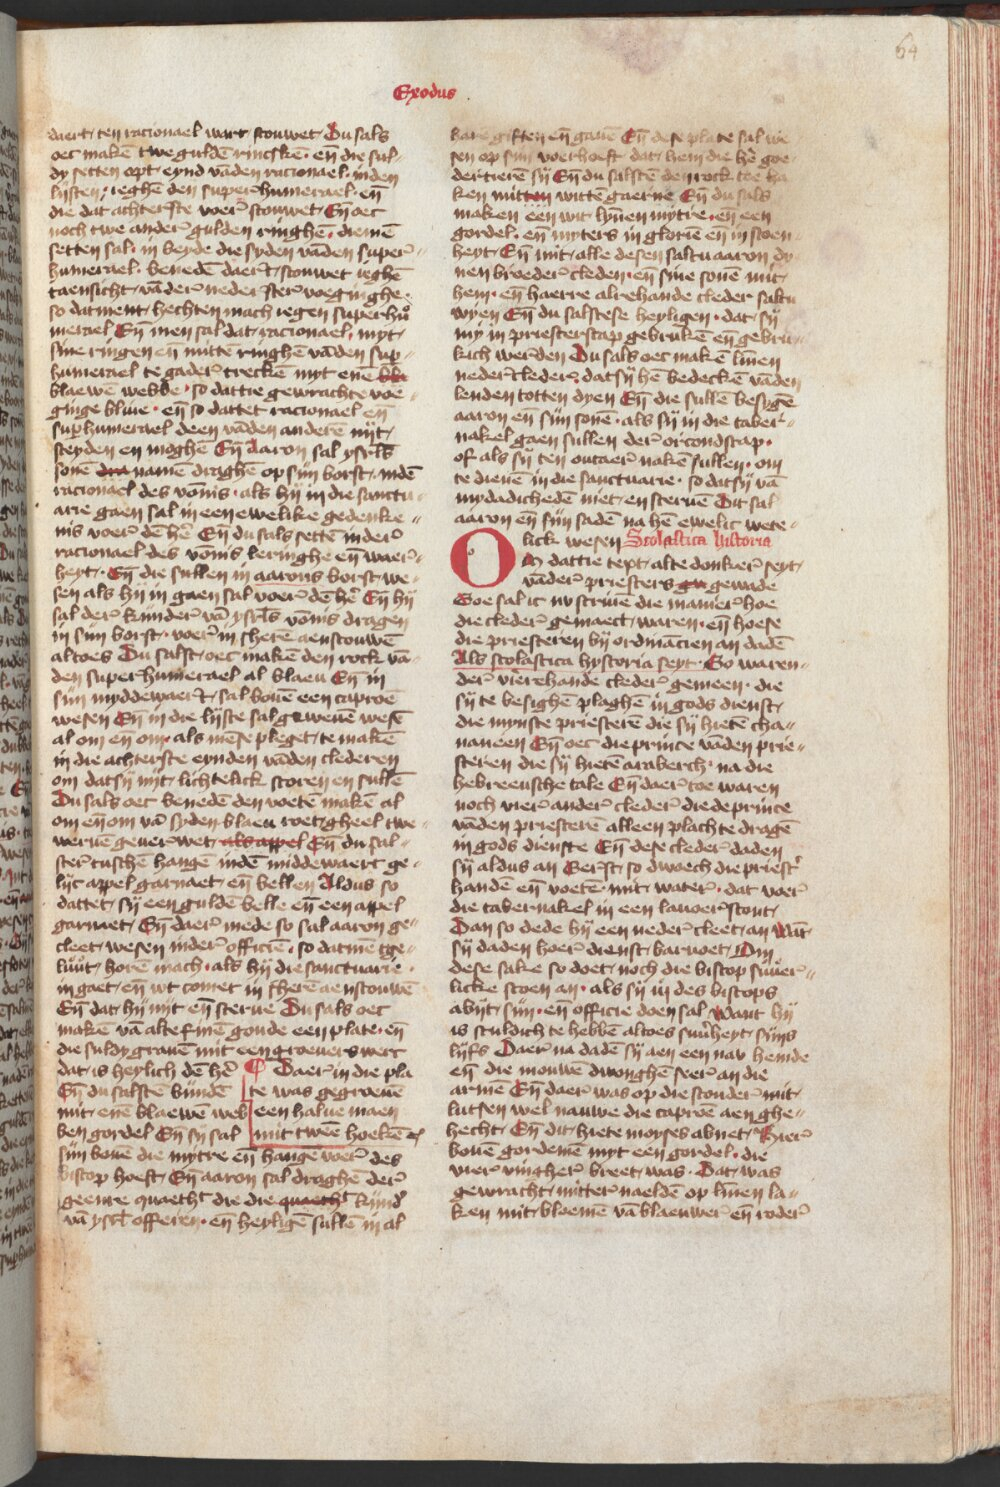 64
Exodus
daert ten racionael wart scouwet Du sals
oec makē twe guldē rincskē · en̄ die sul-
dy setten opt eynd vāden racionael · inden
lijsten · ieghē den superhumerael · en̄
die dat achterste voer̄ scouwet En̄ oec
noch twe ander̄ gulden ringhē · diemē
setten sal · in beyde die syden vāden super-
humerael · benedē daer̄t scouwet ieghē
taensicht vāder̄ neder ster̄ voeginghe ·
so datment hechten mach iegen superhu
merael En̄ men sal dat racionael · myt
sine ringen en̄ mittē ringhē vāden sup-
humerael te gader̄ treckē myt enē
blaewē webbe · so dattie gewrachte voe-
ginge blive · en̄ so dattet racionael en̄
superhumerael deen vāden anderē nyt
sceyden en moghē En̄ Aaron sal ysrl̄s
sonē namē draghē op sijn borst · indē
racionael des vōnis · als hij in die sanctu-
arie gaen sal in een ewelike gedenke-
nis voer̄ dē hē En̄ du sals settē inder̄
racionael des vōnis leringhe en̄ waer̄-
heyt · En̄ die sullen in aarons borst we-
sen als hij in gaen sal voer̄ dē hē En̄ hij
sal der̄ kinder̄ vā ysrl̄s vōnis dragen
in sijn borst · voer̄ in sherē aenscouwē
altoes Du salst oec makē den rock vā-
den superhumerael al blaeu En̄ in
sijn myddewaer̄t sal bovē een caproē
wesen En̄ in die lijste sal gewevē wesē
al om en̄ om · als mēse pleget te makē
in die achterste eynden vāden clederen
om datsij nyt lichtelick storen en sullē
Du sals oec benedē den voetē makē al
om en̄ om vā syden blaeu roet gheel twe-
wervē gever̄wet als appel En̄ du sal-
ster tuschē hangē indē middewaert ge-
lijc appel garnaet en̄ bellen Aldus so
dattet sij een guldē belle en̄ een appel
garnaet En̄ daer̄ mede so sal aaron ge-
cleet wesen inder̄ officiē · so datmē tge-
luut horē mach · als hij die sanctuarie ·
in gaet en̄ wt comet in sherē aenscouwē
En̄ dat hij nyt en̄ sterve Du sals oec
makē vā alte finē goude een plate · en̄
die suldy gravē mit een gravers werc
dat is heylich dē hē Daer̄ in die pla
En̄ du salstē bindē te was gegravē
mit enē blaewē web een halve maen
ben gordel En̄ sij sal mit twēe hoekē
sijn bovē die mytre en̄ hangē voer̄ des
bistop hoeft En̄ aaron sal draghē der̄
geenre quaetht die die quaetht kind̄
vā ysrl̄ offeren · en̄ heyligē sullē in al
hare giften en̄ gavē En̄ dese plate sal we
sen op sijn voerhoeft dat hem die hē goe-
dertierē sij En̄ du salstē den rock toe ha
ken mitten wittē gaerne En̄ du sals
maken een wit lynen mytre · en̄ een
gordel · en̄ myters in gloriē en̄ in scoen-
heyt En̄ mit alle desen saltu aaron dy-
nen broeder̄ cleden · en̄ sine sonē mit
hem · en̄ haerre alrehande cleder saltu
wyen En̄ du salstese heyligen · dat sij
my in priesterscap gebrukē en̄ gebru-
kich werden Du sals oec makē linen
nedercleder̄ · datsij hē bedeckē vāden
lenden totten dyen En̄ die sullē besygē
aaron en̄ sijn sonē · als sij in die taber̄-
nakel gaen sullen der̄ orcondscap ·
of als sij ten outaer̄ nakē sullen · om
te dienē in die sanctuarie · so datsij vā
mysdadichedē niet en stervē Dit sal
aaron en̄ sijn sadē na hē ewelic wete-
lick wesen Scolastica historia
Om dattie text alte donker̄ seyt
vāder̄ priesters gewade
Soe sal ic nv scrive die manier̄ hoe
die cleder̄ gemaect waren · en̄ hoese
die priesteren bij ordinācien an dadē
Als scolastica hystoria seyt · So waren-
der̄ vierehande cleder̄ gemeen · die
sij te besighē plaghē in gods dienst
die mynste priesterē die sij hietē cha-
naneen En̄ oec die prince vāden prie-
steren die sij hietē araberch · na die
hebreeusche tale En̄ daer̄ toe waren
noch vier̄ ander̄ cleder̄ die de prince
vāden priesterē alleen plachte dragē
in gods dienste En̄ dese cleder̄ daden
sij aldus an Eer̄st so dwoech die priest̄
handē en̄ voetē · mit water̄ · dat voer̄
die tabernakel in een lavoer̄ stont
Dan so dede hij een neder̄ cleet an Wāt
sij daden hoer̄ dienst barvoet Om
dese sake so doet noch die biscop suver̄-
licke scoen an · als sij in des biscops
abijt sijn · en̄ officie doen sal Want hij
is sculdich te hebbē altoes suv̄heyt sijns
lijfs Daer̄ na dadē sij aen een nav hemde
en̄ die mouwē dwonghē seer̄ an die
armē En̄ daer̄ was op die scouder̄ mit
lutsen wel nauwe die caproē aen ghe-
hecht En̄ dit hiete moyses abnet Hier̄
bovē gordemē myt een gordel · die
vier̄ vingher̄ breet was · Dat was
gewracht mitter̄ naeldē op linen la-
ken mit bloemē vā blaeuwer̄ en̄ roder̄